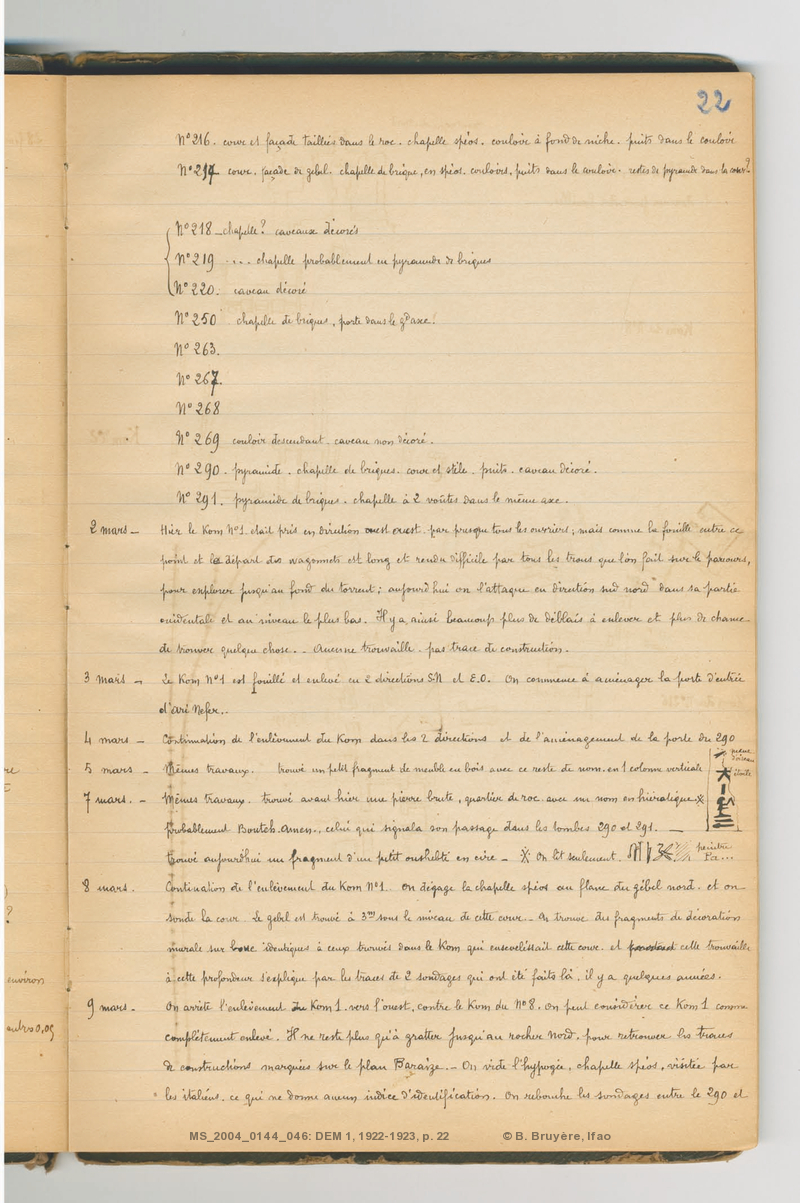 22
N° 216. cour et façade taillées dans le roc. chapelle spéos. couloir à fond de niche. puits dans le couloir
N° 217 cour. façade de gebel. chapelle de brique, en spéos. couloirs, puits dans le couloir. restes de pyramide dans la cour?
N° 218 _ chapelle? caveaux décorés
N° 219 .... chapelle probablement en pyramide de briques
N° 220. caveau décoré
N° 250 chapelle de briques, porte dans le gd axe.
N° 263.
N° 267.
N° 268
N° 269 couloir descendant. caveau non décoré.
N° 290. pyramide. chapelle de briques. cour et stèle. puits. caveau décoré.
N° 291. pyramide de briques. chapelle à 2 voûtes dans le même axe.
2 mars _ Hier le Kom N°1 était pris en direction ouest par presque tous les ouvriers; mais comme la fouille entre ce
point et le départ des wagonnets est long et rendu difficile par tous les trous que l'on fait sur le parcours,
pour explorer jusqu'au fond du torrent; aujourd'hui on l'attaque en direction sud nord dans sa partie
occidentale et au niveau le plus bas. Il y a, ainsi beaucoup plus de déblais à enlever et plus de chance
de trouver quelque chose. _ Aucune trouvaille. pas trace de construction.
3 mars _ Le Kom N°1 est fouillé et enlevé en 2 directions S.N et E.O. On commence à aménager la porte d'entrée
d'Ari Nefer. _
4 mars _ Continuation de l'enlèvement du Kom dans les 2 directions et de l'aménagement de la porte du 290
5 mars _ Mêmes travaux. trouvé un petit fragment de meuble en bois avec ce reste de nom. en 1 colonne verticale
étoile
7 mars. _ Mêmes travaux. trouvé avant hier une pierre brute, quartier de roc avec un nom en hiératique ※
probablement Bouteh.amen., celui qui signala son passage dans les tombes 290 et 291. _
trouvé aujourd'hui un fragment d'un petit oushebti en cire _ ※ On lit seulement peintre
Pa...
8 mars. Continuation de l'enlèvement du Kom N°1. On dégage la chapelle spéos au flanc du gébel nord. et on
sonde la cour. Le gebel est trouvé à 3m sous le niveau de cette cour. On trouve des fragments de décoration
murale sur identiques à ceux trouvés dans le Kom qui ensevelissait cette cour. et cette trouvaille
à cette profondeur s'explique par les traces de 2 sondages qui ont été faits là, il y a quelques années.
9 mars. On arrête l'enlèvement du Kom 1. vers l'ouest, contre le Kom du N°8. On peut considérer ce Kom 1 comme
complètement enlevé. Il ne reste plus qu'à gratter jusqu'au rocher Nord, pour retrouver les traces
de constructions marquées sur le plan Baraize. _ On vide l'hypogée, chapelle spéos, visitée par
les italiens. ce qui ne donne aucun indice d'identification. On rebouche les sondages entre le 290 et
environ
MS_2004_0144_046: DEM 1, 1922-1923, p. 22 © B. Bruyère, Ifao